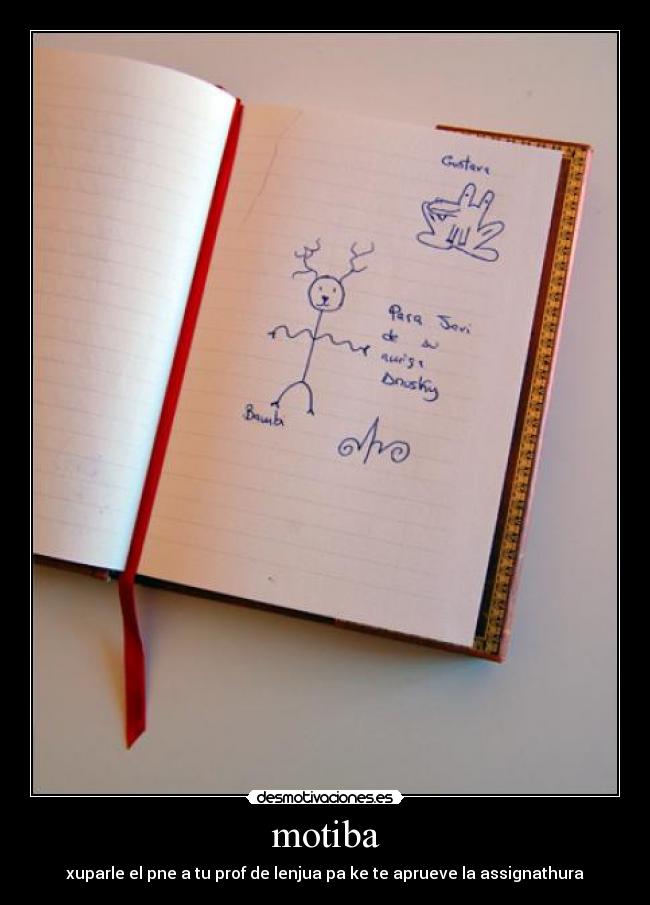 Gustavo
Para Javi
de su
amiga
Drusky
Bambi
desmotivaciones.es
motiba
xuparle el pne a tu prof de lenjua pa ke te aprueve la assignathura